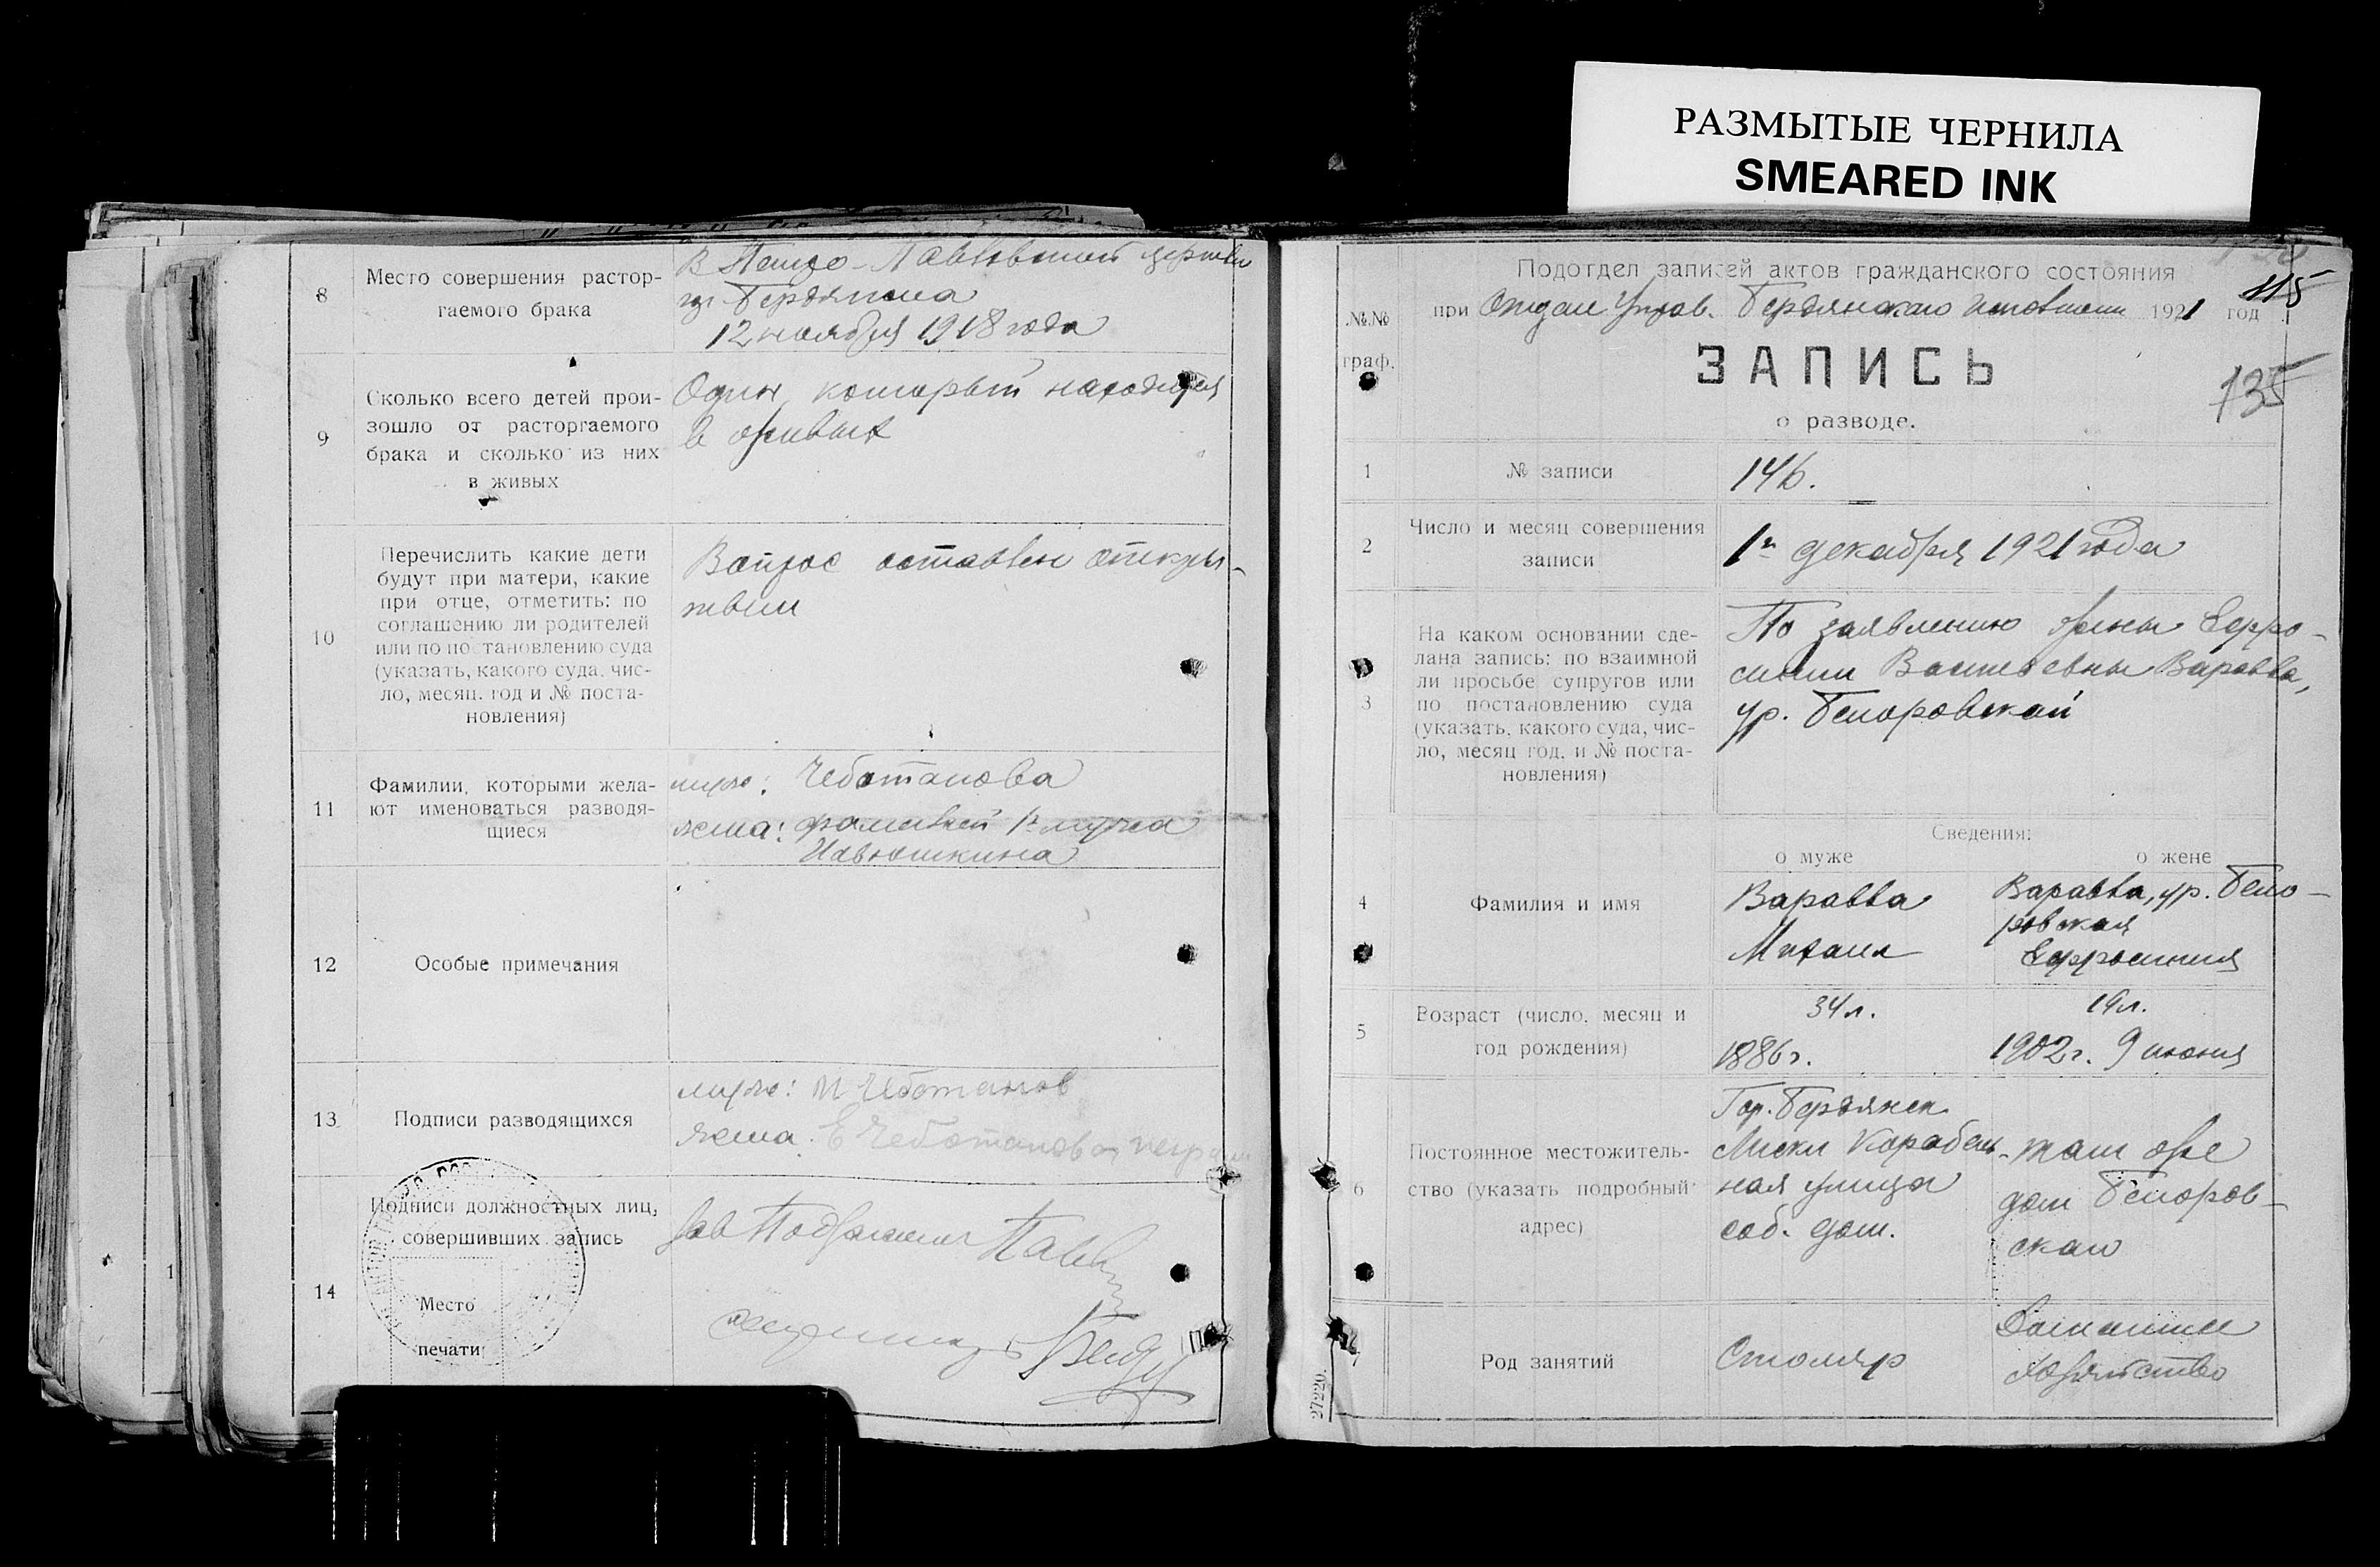 РАЗМЫТЫЕ ЧЕРНИЛА
SMEARED INK
8
Место совершения растор-
гаемого брака
В Петро-Павловской церкви
гор. Бердянска
12 ноября 1918 года
9
Сколько всего детей прои-
зошло от расторгаемого
брака и сколько из них
в живых
Один, который находится
в живых
10
Перечислить какие дети
будут при матери, какие
при отце, отметить: по
соглашению ли родителей
или по постановлению суда
(указать, какого суда, чис-
ло, месяц, год и № поста-
новления)
Вопрос оставлен откры-
тым
11
Фамилии, которыми жела-
ют именоваться разводя-
щиеся
муж: Чеботанова
жена: фамилией 1го мужа
12
Особые примечания
13
Подписи разводящихся
муж: Чеботанов
жена: Е Чеботанова
14
Подписи должностных лиц,
совершивших запись
Место
печати
Зав Подотделом
№№
граф.
Подотдел записей актов гражданского состояния
при Отделе Управ. Бердянского Исполкома 1921 год
115
135
ЗАПИСЬ
о разводе.
1
№ записи
146.
2
Число и месяц совершения
записи
1го декабря 1921 года
3
На каком основании сде-
лана запись: по взаимной
ли просьбе супругов или
по постановлению суда
(указать, какого суда, чис-
ло, месяц год, и № поста-
новления)
По заявлению жены Ефро-
синии Варавва,
ур. Белоровской
Сведения:
о муже
о жене
4
Фамилия и имя
Варавва
Михаил
Варавва, ур. Бело-
ровская
Ефросиния
5
Возраст (число, месяц и
год рождения)
34 л.
1886 г.
19 л.
1902 г. 9 июня
6
Постоянное местожитель-
ство (указать подробный
адрес)
Гор. Бердянск
Лиски Корабель-
ная улица
соб. дом.
там же
дом Белоров-
ской
7
Род занятий
Столяр
Домашнее
хозяйство
27220.